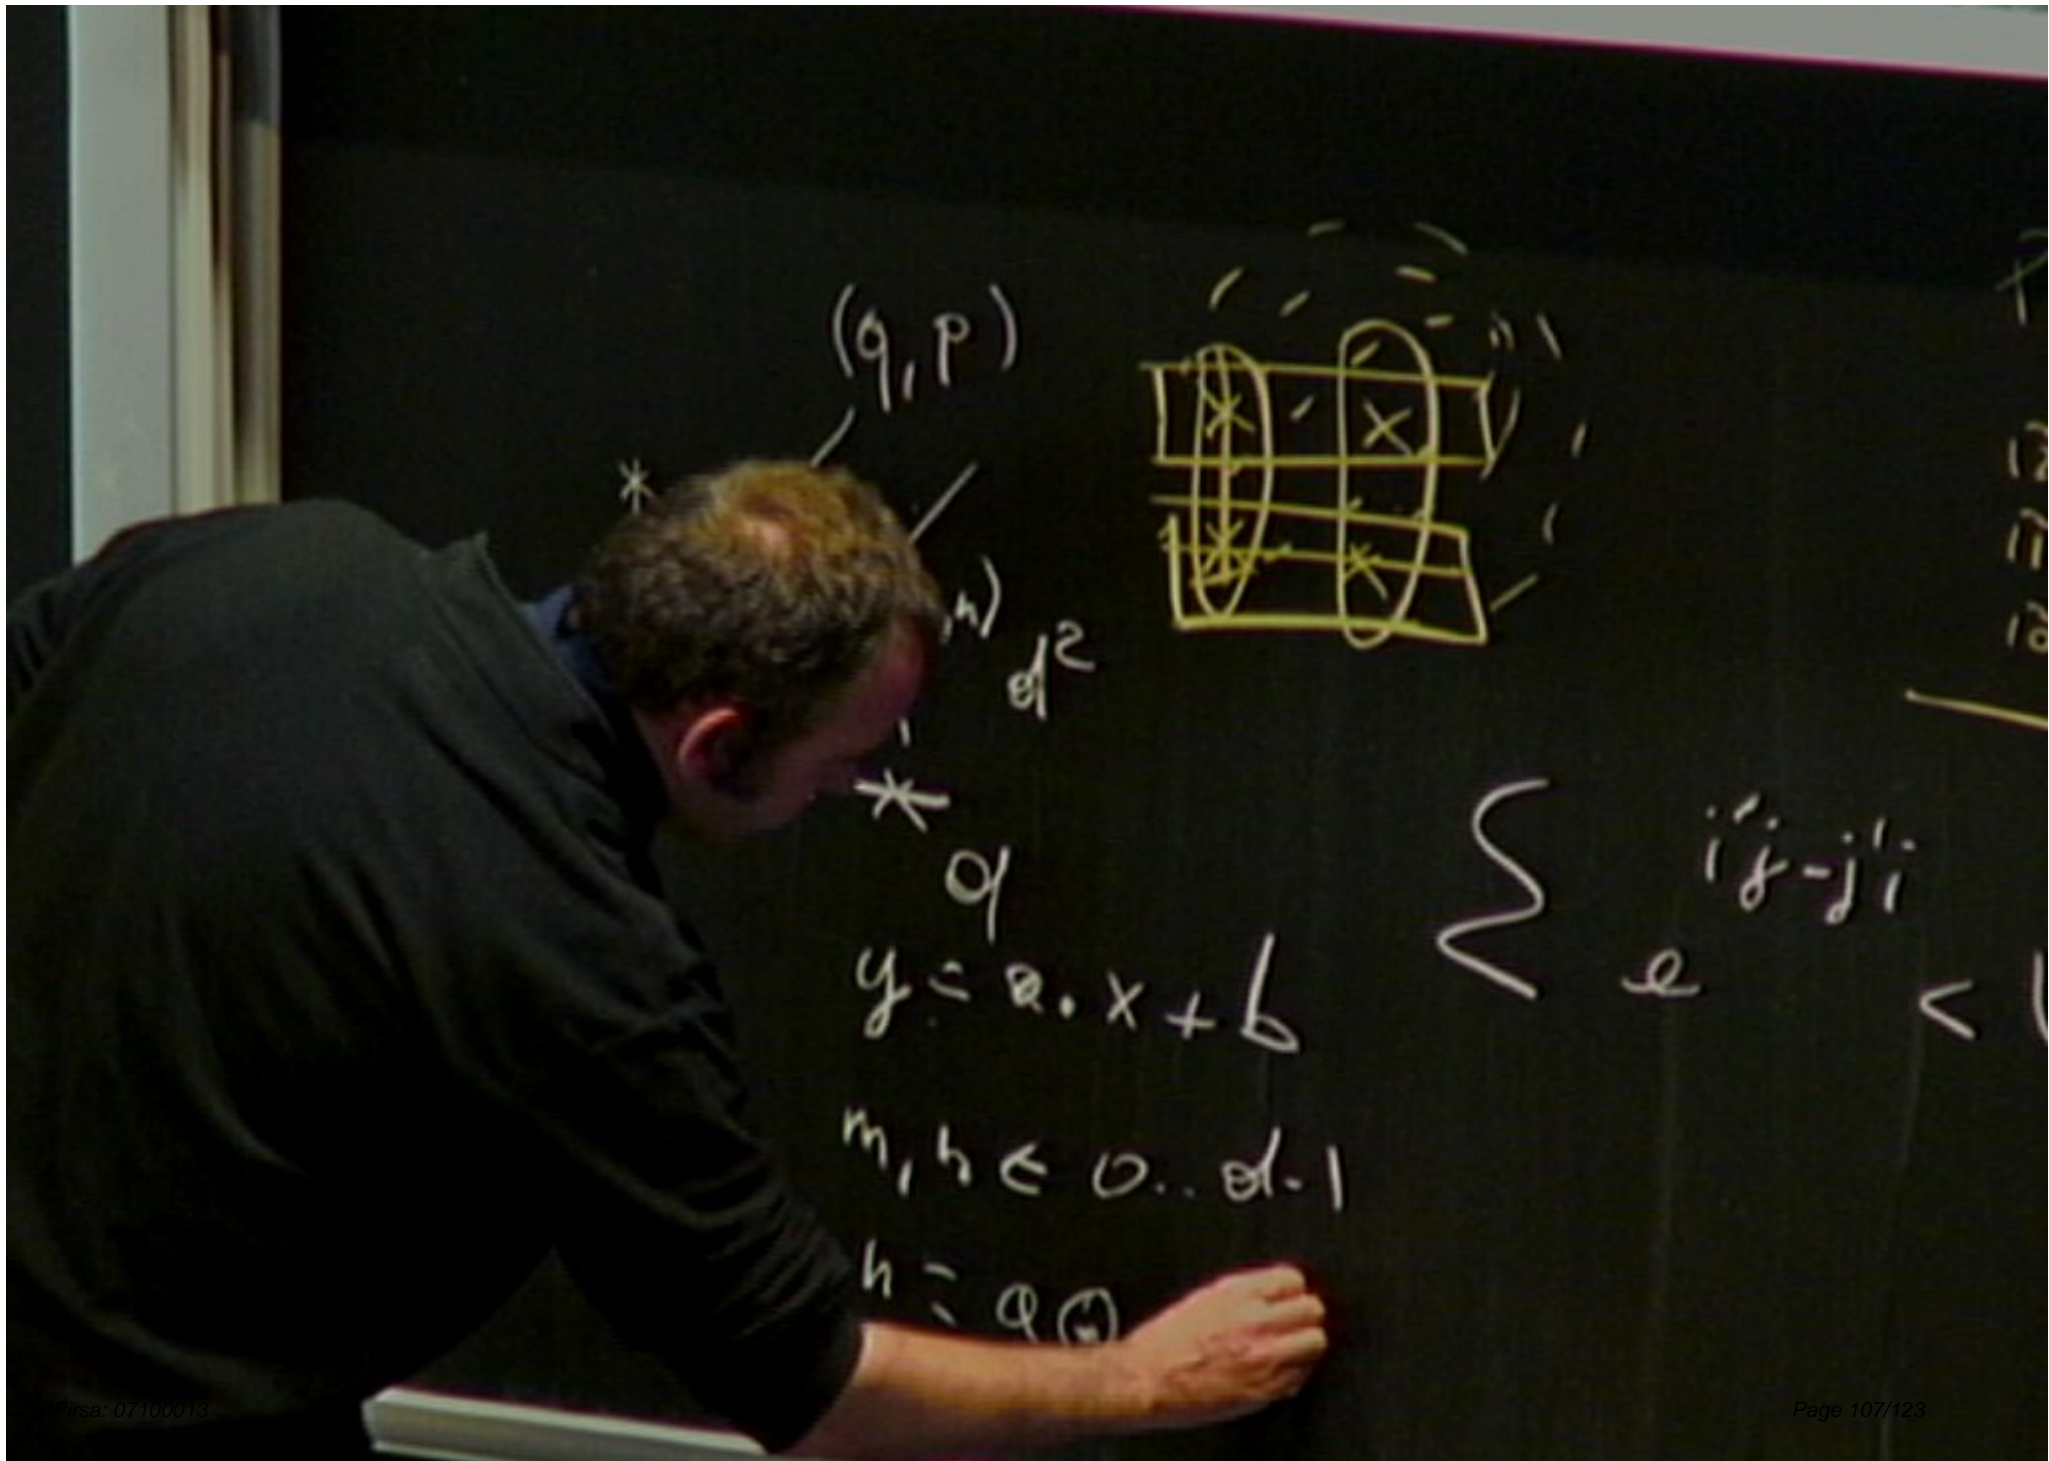 (q, p)
*
, n)
d²
*
q
y = a. x + b
m, n ∈ 0.. d-1
n = a ⊙
{ e i'j-j'i <
Pirsa: 07100013
Page 107/123